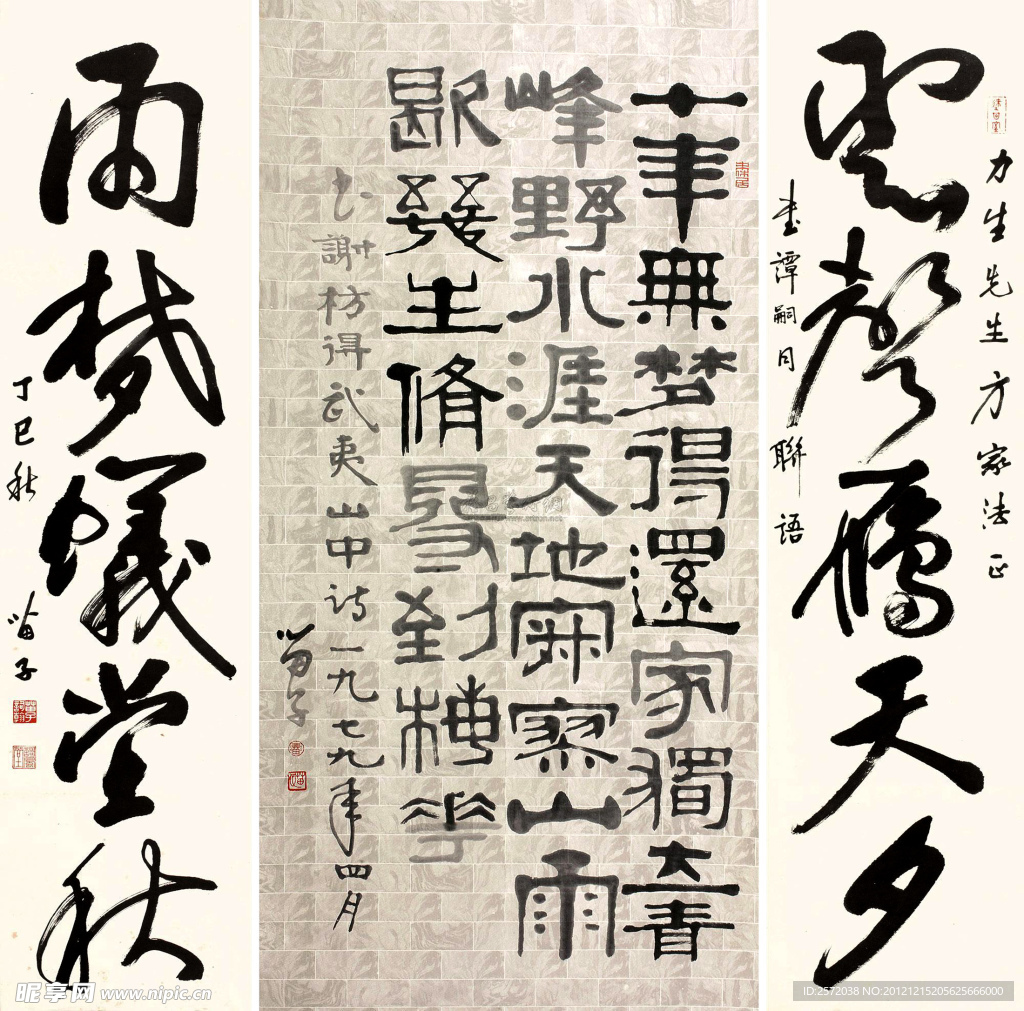 力生先生方家法正
雲聲鴈天夕
書譚嗣同聯語
十年無夢得還家獨立青
峰野水涯天地寂寥山雨
歇幾生脩得到梅花
书謝枋得武夷山中詩一九七九年四月
苗子
雨夢蟻堂秋
丁巳秋
苗子
昵享网 www.nipic.cn
ID:2572038 NO:20121215205625666000